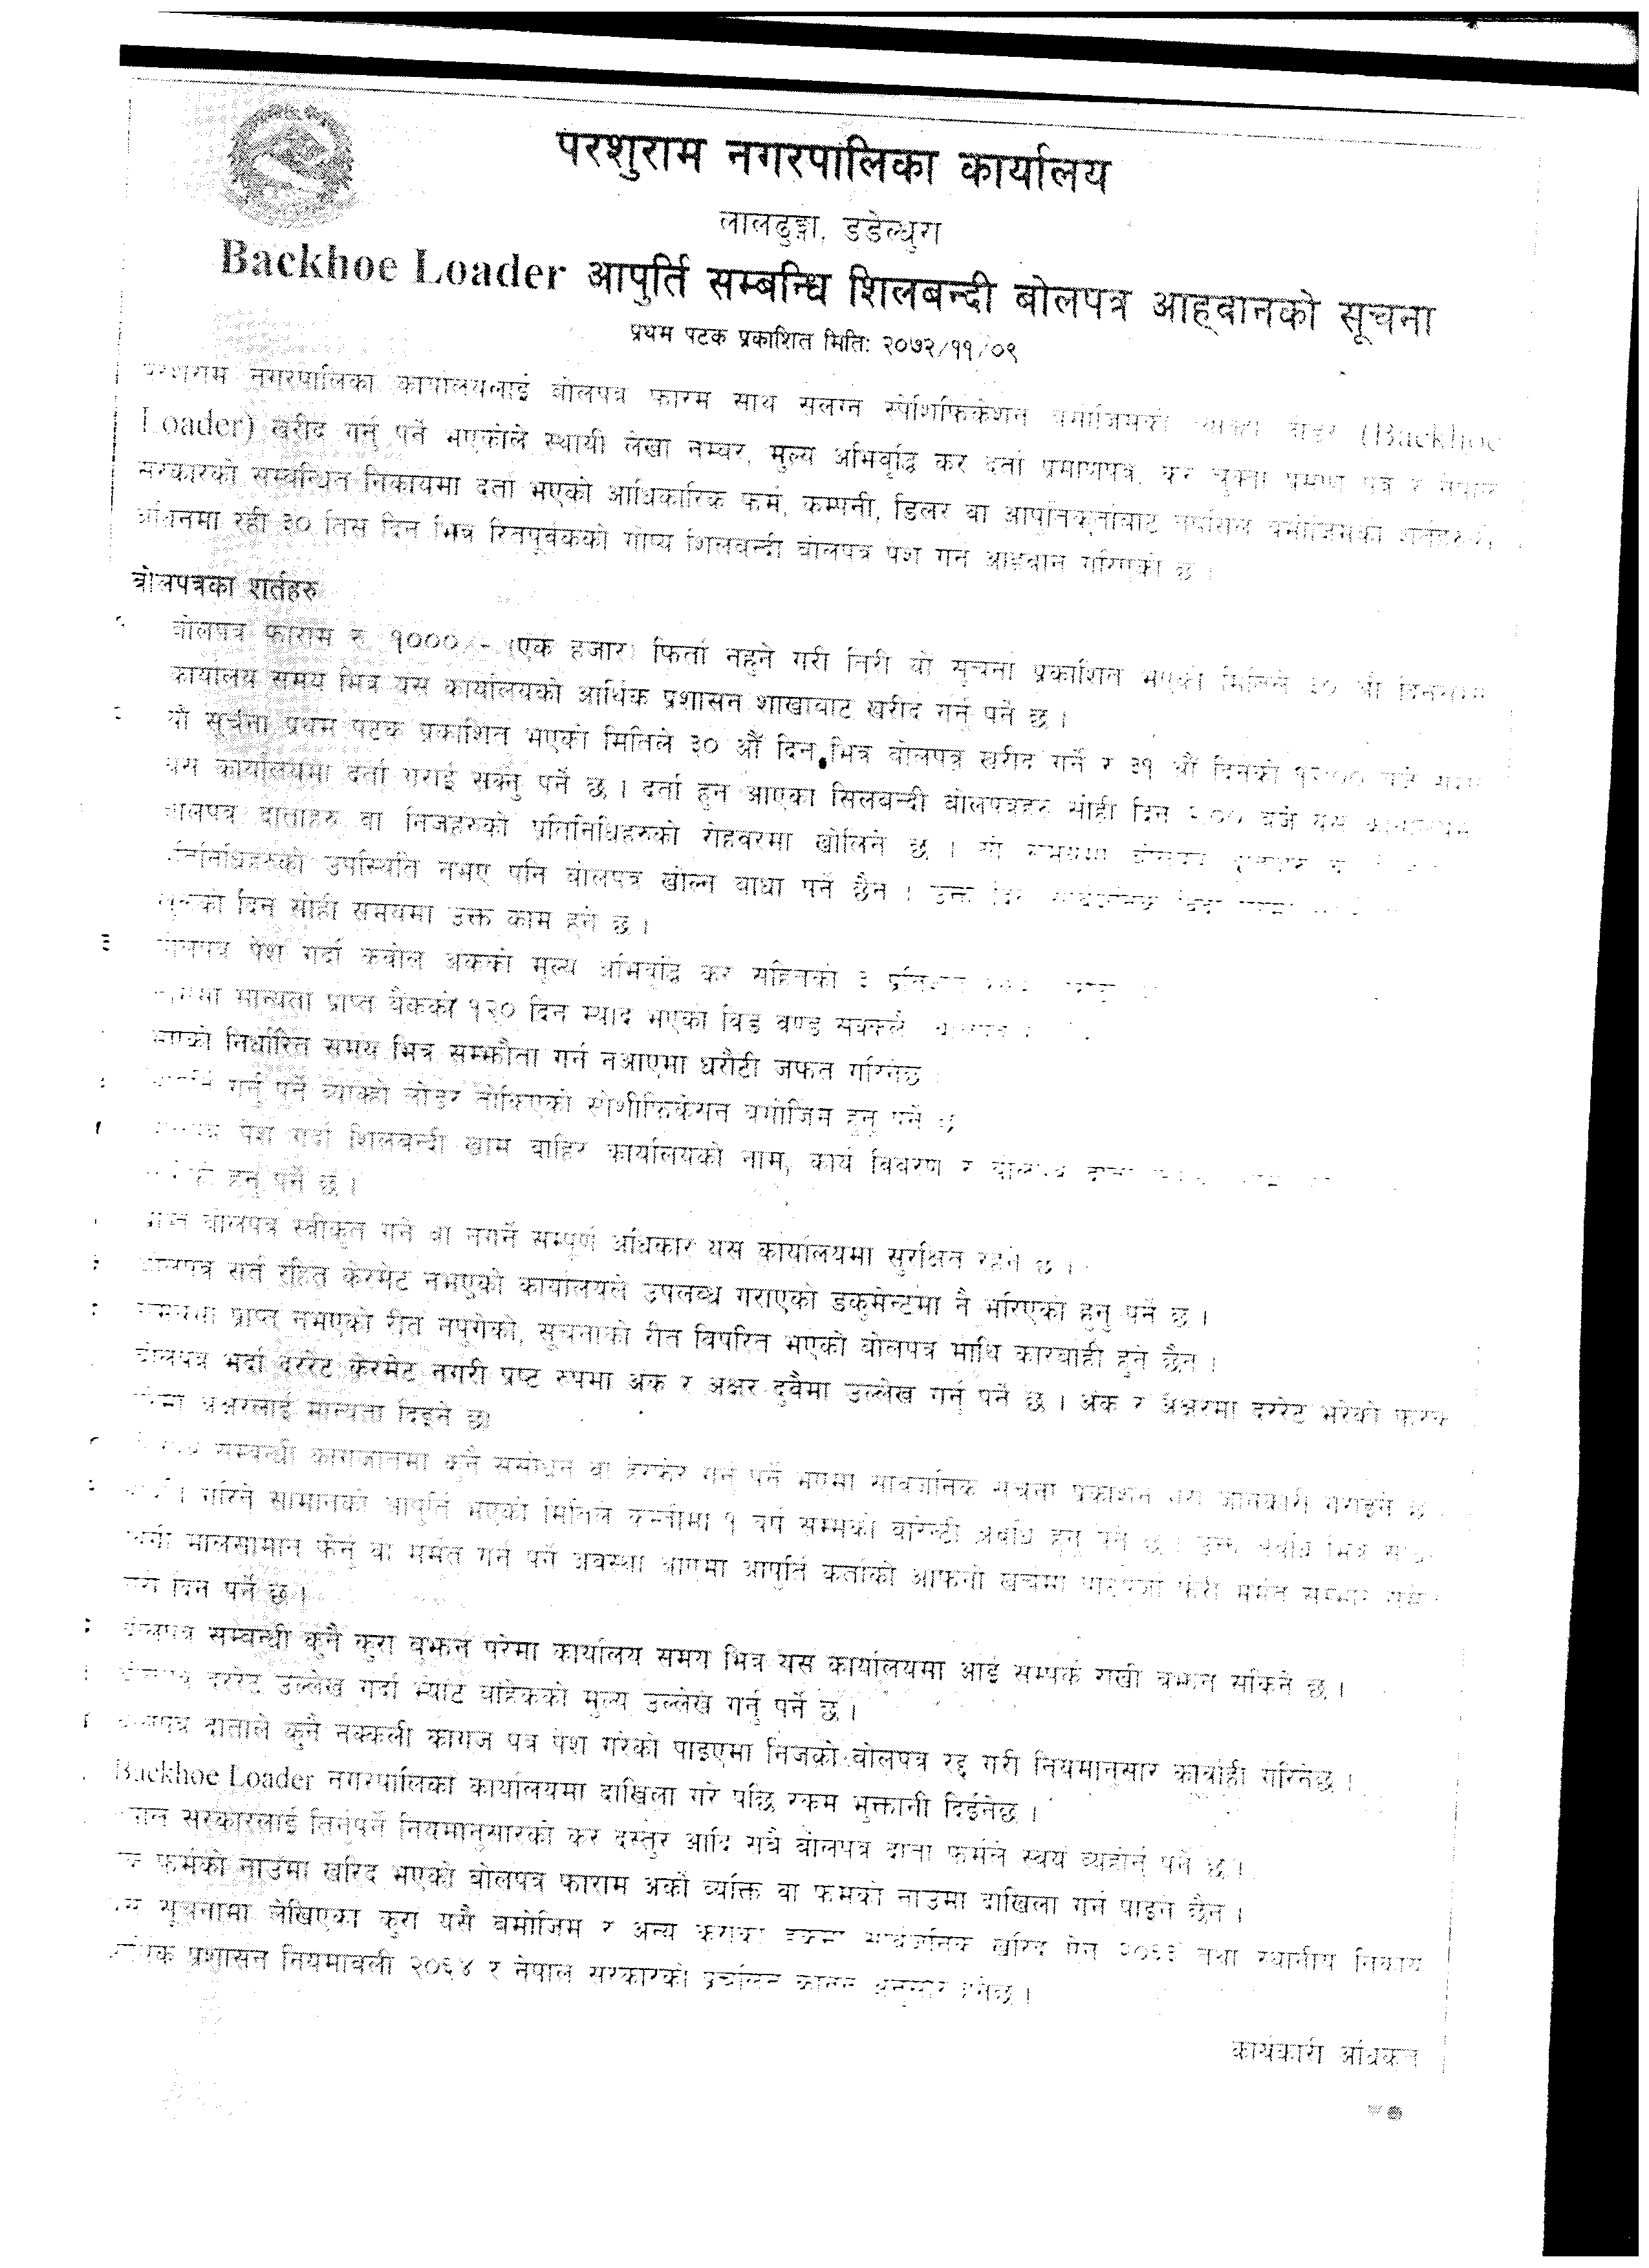 परशुराम नगरपालिका कार्यालय
लालढुङ्गा, डडेल्धुरा
Backhoe Loader आपुर्ति सम्बन्धि शिलबन्दी बोलपत्र आह्वानको सूचना
प्रथम पटक प्रकाशित मिति: २०७२/११/०९
परशुराम नगरपालिका कार्यालयलाई बोलपत्र फारम साथ संलग्न स्पेशिफिकेशन बमोजिमको लोडर (Backhoe
Loader) खरीद गर्नु पर्ने भएकोले स्थायी लेखा नम्बर, मुल्य अभिवृद्धि कर दर्ता प्रमाणपत्र, कर चुक्ता प्रमाण पत्र र नेपाल
सरकारको सम्बन्धित निकायमा दर्ता भएको आधिकारिक फर्म, कम्पनी, डिलर वा आपूर्तिकर्ताबाट तपसिल बमोजिमका शर्तहरुको
अधिनमा रही ३० तिस दिन भित्र रितपूर्वकको गोप्य शिलबन्दी बोलपत्र पेश गर्न आह्वान गरिएको छ ।
बोलपत्रका शर्तहरु
बोलपत्र फाराम रु. १०००/- (एक हजार) फिर्ता नहुने गरी तिरी यो सूचना प्रकाशित भएको मितिले ३० औं दिनसम्म
कार्यालय समय भित्र यस कार्यालयको आर्थिक प्रशासन शाखाबाट खरीद गर्नु पर्ने छ ।
यो सूचना प्रथम पटक प्रकाशित भएको मितिले ३० औं दिन भित्र बोलपत्र खरीद गर्ने र ३१ औं दिनको १२:०० बजे
यस कार्यालयमा दर्ता गराई सक्नु पर्ने छ । दर्ता हुन आएका सिलबन्दी बोलपत्रहरु सोही दिन बजे यस
बोलपत्र दाताहरु वा निजहरुको प्रतिनिधिहरुको रोहवरमा खोलिने छ । सो
प्रतिनिधिहरुको उपस्थिति नभए पनि बोलपत्र खोल्न बाधा पर्ने छैन । उक्त दिन सार्वजनिक बिदा
दिन सोही समयमा उक्त काम हुने छ ।
३ बोलपत्र पेश गर्दा कबोल अंकको मूल्य अभिवृद्धि कर सहितको ३ प्रतिशत
मान्यता प्राप्त बैंकको १२० दिन म्याद भएको बिड बण्ड सक्कलै
भएको निर्धारित समय भित्र सम्झौता गर्न नआएमा धरौटी जफत गरिनेछ
गर्नु पर्ने व्याक्हो लोडर तोकिएको स्पेशीफिकेशन बमोजिम हुनु पर्ने छ
बोलपत्र पेश गर्दा शिलबन्दी खाम बाहिर कार्यालयको नाम, कार्य विवरण र बोलपत्र दाता
हुनु पर्ने छ ।
प्राप्त बोलपत्र स्वीकृत गर्ने वा नगर्ने सम्पूर्ण अधिकार यस कार्यालयमा सुरक्षित रहने छ ।
बोलपत्र सर्त रहित केरमेट नभएको कार्यालयले उपलब्ध गराएको डकुमेन्टमा नै भरिएको हुनु पर्ने छ ।
समयमा प्राप्त नभएको रीत नपुगेको, सूचनाको रीत विपरित भएको बोलपत्र माथि कारबाही हुने छैन ।
बोलपत्र भर्दा दररेट केरमेट नगरी प्रष्ट रुपमा अंक र अक्षर दुवैमा उल्लेख गर्नु पर्ने छ । अंक र अक्षरमा दररेट भरेको फरक
अक्षरलाई मान्यता दिइने छ।
सम्बन्धी कागजातमा कुनै संसोधन वा हेरफेर गर्नु पर्ने भएमा सार्वजनिक सूचना प्रकाशन गरी जानकारी गराइने छ
गरिने सामानको आपुर्ति भएको मितिले कम्तीमा १ वर्ष सम्मको वारेन्टी अवधि हुनु पर्ने छ । उक्त अवधि भित्र
मालसामान फेर्नु वा मर्मत गर्नु पर्ने अवस्था आएमा आपुर्ति कर्ताको आफ्नो खर्चमा पार्टपूर्जा फेरी मर्मत सम्भार
दिनु पर्ने छ ।
बोलपत्र सम्बन्धी कुनै कुरा बुझ्न परेमा कार्यालय समय भित्र यस कार्यालयमा आई सम्पर्क राखी बुझ्न सकिने छ ।
बोलपत्र दररेट उल्लेख गर्दा भ्याट बाहेकको मुल्य उल्लेख गर्नु पर्ने छ ।
बोलपत्र दाताले कुनै नक्कली कागज पत्र पेश गरेको पाइएमा निजको बोलपत्र रद्द गरी नियमानुसार कार्वाही गरिनेछ ।
Backhoe Loader नगरपालिका कार्यालयमा दाखिला गरे पछि रकम भुक्तानी दिईनेछ ।
नेपाल सरकारलाई तिर्नुपर्ने नियमानुसारको कर दस्तुर आदि सबै बोलपत्र दाता फर्मले स्वयं व्यहोर्नु पर्ने छ ।
एक फर्मको नाउँमा खरिद भएको बोलपत्र फाराम अर्को व्यक्ति वा फर्मको नाउमा दाखिला गर्न पाइने छैन ।
यस सूचनामा लेखिएका कुरा यसै बमोजिम र अन्य कुराका हकमा सार्वजनिक खरिद ऐन २०६३ तथा स्थानीय निकाय
आर्थिक प्रशासन नियमावली २०६४ र नेपाल सरकारको प्रचलित कानून अनुसार हुनेछ ।
कार्यकारी अधिकृत